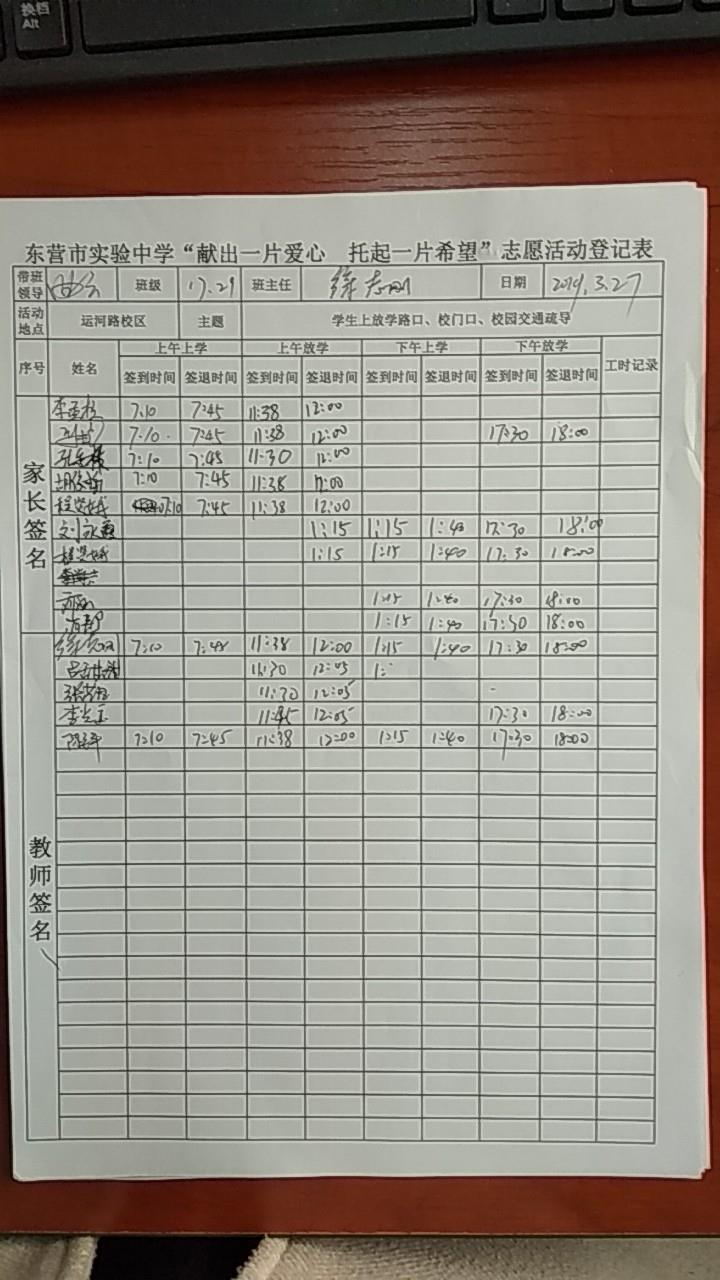 换档
Alt
东营市实验中学“献出一片爱心 托起一片希望”志愿活动登记表
带班领导 班级 17.29 班主任 徐志刚 日期 2019.3.27
活动地点 运河路校区 主题 学生上放学路口、校门口、校园交通疏导
序号 姓名 上午上学 上午放学 下午上学 下午放学 工时记录
签到时间 签退时间 签到时间 签退时间 签到时间 签退时间 签到时间 签退时间
家长签名
7:10 7:45 11:38 12:00
7:10 7:45 11:38 12:00 17:30 18:00
7:10 7:45 11:30 12:00
7:10 7:45 11:38
7:10 7:45 11:38 12:00
1:15 1:15 1:40 17:30 18:00
1:15 1:15 1:40 17:30 18:00
1:15 1:40 17:30 18:00
1:15 1:40 17:30 18:00
教师签名
徐志刚 7:10 11:38 12:00 1:15 1:40 17:30 18:00
11:30 12:05
11:30 12:05
11:45 12:05 17:30 18:00
7:10 7:45 11:38 12:00 1:15 1:40 17:30 18:00